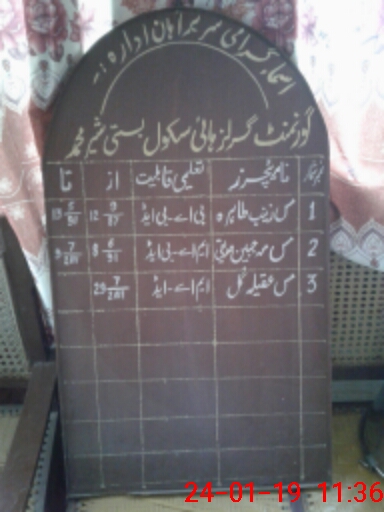 اسمائے گرامی سربراہان ادارہ :-
گورنمنٹ گرلز ہائی سکول بستی شیر محمد
نمبر شمار نام ٹیچرز تعلیمی قابلیت از تا
1 مس زینب طاہرہ بی اے-بی ایڈ
2 مس مہ جبین صوفی ایم اے-بی ایڈ
3 مس عقیلہ گل ایم اے-ایڈ
24-01-19 11:36